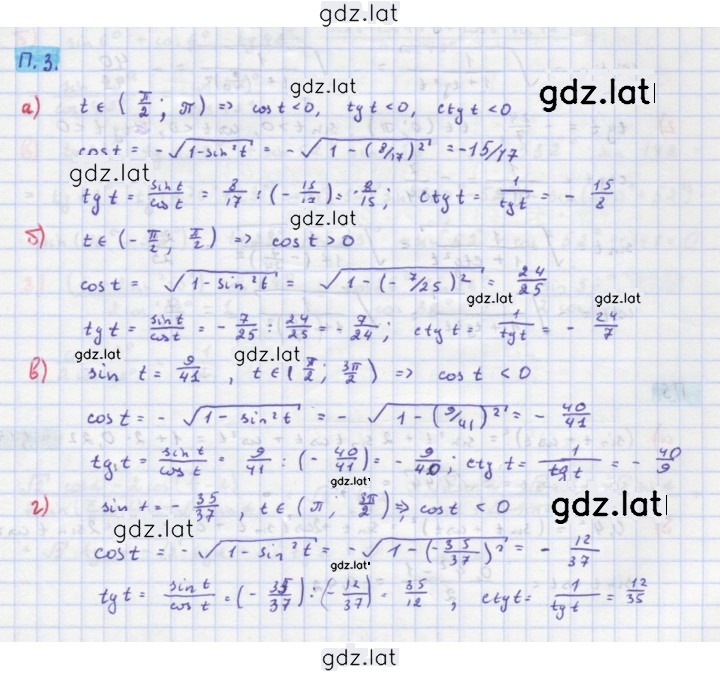 gdz.lat
П.3.
gdz.lat
gdz.lat
а) t ∈ (π/2; π) => cos t < 0, tg t < 0, ctg t < 0
cos t = -√(1-sin²t) = -√(1-(8/17)²) = -15/17
gdz.lat
tg t = sin t/cos t = 8/17 : (-15/17) = -8/15; ctg t = 1/tg t = -15/8
gdz.lat
б) t ∈ (-π/2; π/2) => cos t > 0
cos t = √(1-sin²t) = √(1-(-7/25)²) = 24/25
gdz.lat
gdz.lat
tg t = sin t/cos t = -7/25 : 24/25 = -7/24; ctg t = 1/tg t = -24/7
gdz.lat
gdz.lat
в) sin t = 9/41, t ∈ (π/2; 3π/2) => cos t < 0
cos t = -√(1-sin²t) = -√(1-(9/41)²) = -40/41
tg t = sin t/cos t = 9/41 : (-40/41) = -9/40; ctg t = 1/tg t = -40/9
gdz.lat
г) sin t = -35/37, t ∈ (π, 3π/2) => cos t < 0
gdz.lat
gdz.lat
cos t = -√(1-sin²t) = -√(1-(-35/37)²) = -12/37
gdz.lat
tg t = sin t/cos t = (-35/37) : (-12/37) = 35/12, ctg t = 1/tg t = 12/35
gdz.lat